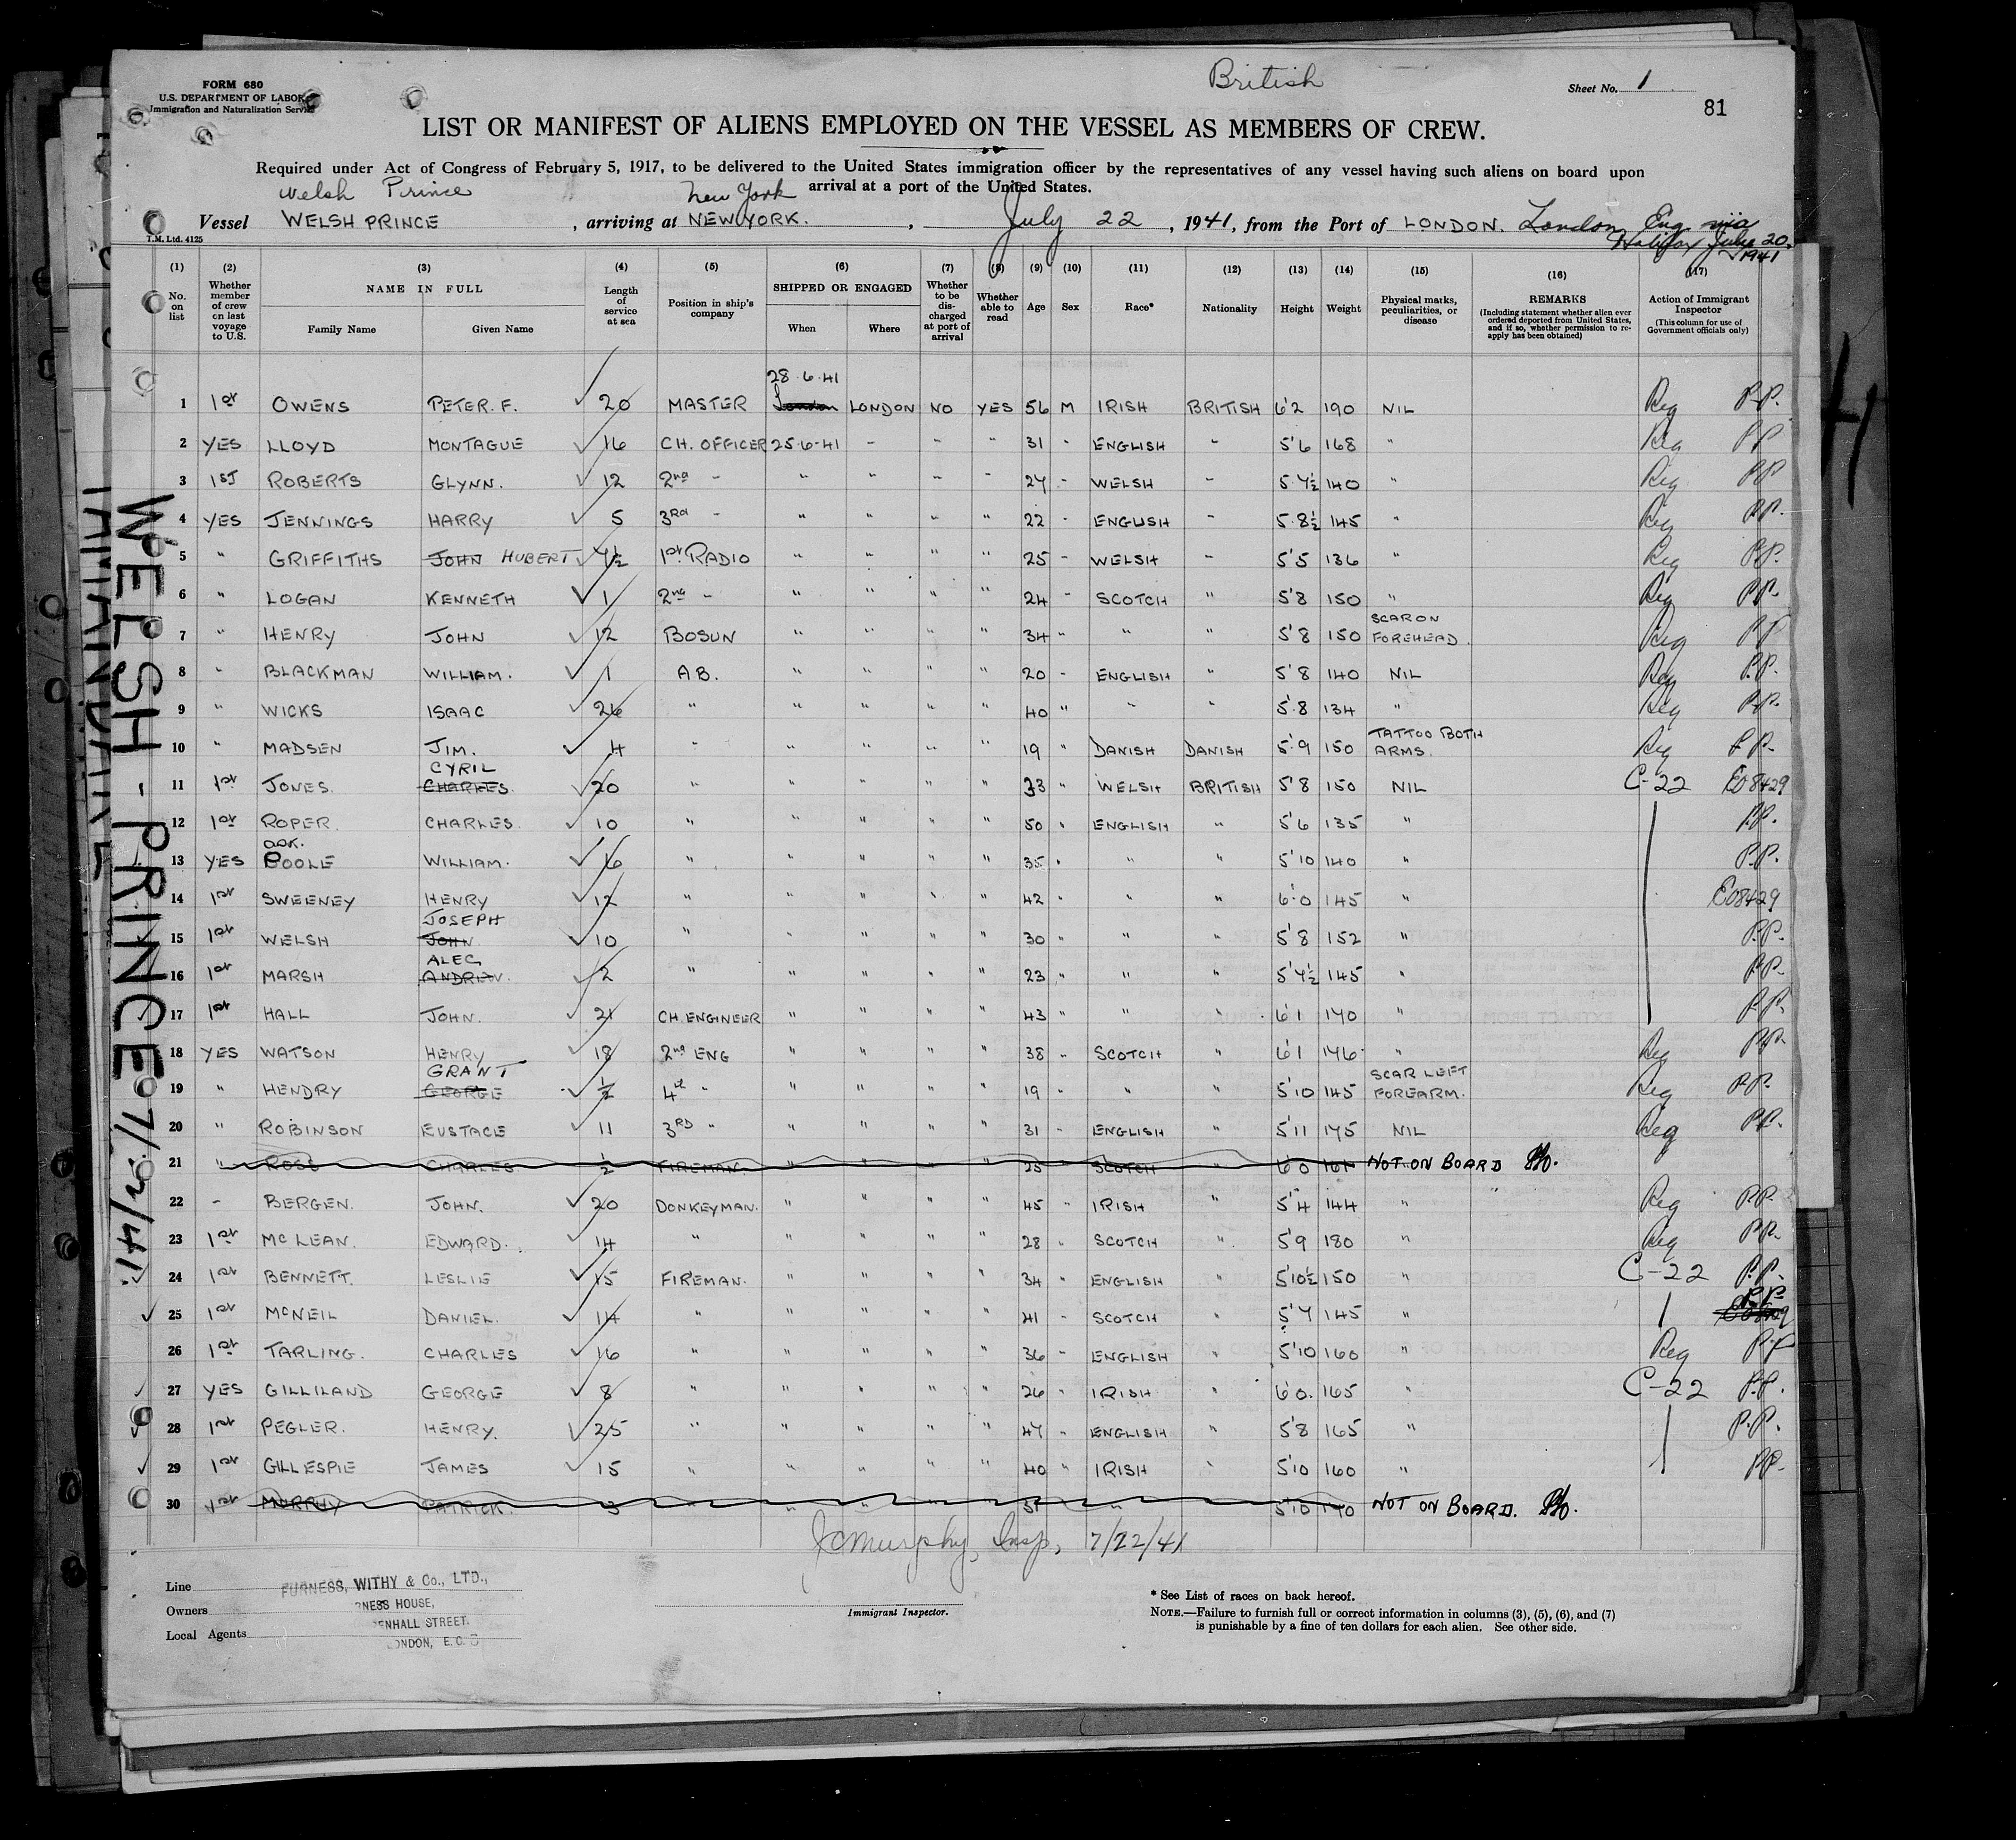 British
FORM 680
U.S. DEPARTMENT OF LABOR
Immigration and Naturalization Service
Sheet No. 1
81
LIST OR MANIFEST OF ALIENS EMPLOYED ON THE VESSEL AS MEMBERS OF CREW.
Required under Act of Congress of February 5, 1917, to be delivered to the United States immigration officer by the representatives of any vessel having such aliens on board upon
arrival at a port of the United States.
Welsh Prince New York
Vessel WELSH PRINCE , arriving at NEW YORK. , July 22 , 1941, from the Port of LONDON. London Eng via
Halifax July 20, 1941
T.M. Ltd. 4125
(1) (2) (3) (4) (5) (6) (7) (8) (9) (10) (11) (12) (13) (14) (15) (16) (17)
No. on list
Whether member of crew on last voyage to U.S.
NAME IN FULL
Family Name Given Name
Length of service at sea
Position in ship's company
SHIPPED OR ENGAGED
When Where
Whether to be discharged at port of arrival
Whether able to read
Age Sex Race* Nationality Height Weight
Physical marks, peculiarities, or disease
REMARKS
(Including statement whether alien ever ordered deported from United States, and if so, whether permission to reapply has been obtained)
Action of Immigrant Inspector
(This column for use of Government officials only)
28.6.41
1 1st OWENS PETER. F. 20 MASTER London LONDON NO YES 56 M IRISH BRITISH 6'2 190 NIL Reg P.P.
2 YES LLOYD MONTAGUE 16 CH. OFFICER 25.6.41 - " " 31 " ENGLISH " 5'6 168 " Reg PP
3 1ST ROBERTS GLYNN. 12 2nd - " " " " 27 - WELSH - 5.7½ 140 " Reg PP
4 YES JENNINGS HARRY 5 3rd - " " - " 22 - ENGLISH - 5.8½ 145 " Reg P.P.
5 " GRIFFITHS JOHN HUBERT 4½ 1st RADIO " " " " 25 - WELSH - 5'5 136 " Reg P.P.
6 " LOGAN KENNETH 1 2nd - " " " " 24 - SCOTCH " 5'8 150 " Reg P.P.
7 " HENRY JOHN 12 BOSUN " " " " 34 " " " 5'8 150 SCAR ON FOREHEAD. Reg PP
8 " BLACKMAN WILLIAM. 1 A.B. " " " " 20 - ENGLISH " 5'8 140 NIL Reg P.P.
9 " WICKS ISAAC 26 " " " " " 40 " " " 5.8 134 " Reg P.P.
10 " MADSEN JIM. 4 " " " " " 19 " DANISH DANISH 5'9 150 TATTOO BOTH ARMS. Reg P.P.
CYRIL
11 1st JONES. CHARLES. 20 " " " " " 33 " WELSH BRITISH 5'8 150 NIL C-22 E08429
12 1st ROPER. CHARLES. 10 " " " " " 50 " ENGLISH " 5'6 135 " P.P.
13 YES POOLE WILLIAM. 16 " " " " " 35 " " " 5'10 140 " P.P.
14 1st SWEENEY HENRY 12 " " " " " 42 " " " 6.0 145 " E08429
JOSEPH
15 1st WELSH JOHN 10 " " " " " 30 " " " 5'8 152 " P.P.
ALEC
16 1st MARSH ANDREW. 2 " " " " " 23 " " " 5'7½ 145 " P.P.
17 1st HALL JOHN. 21 CH. ENGINEER " " " " 43 " " " 6'1 170 " P.P.
18 YES WATSON HENRY 18 2nd ENG " " " " 38 " SCOTCH " 6'1 176 " Reg P.P.
GRANT
19 " HENDRY GEORGE ½ 4th " " " " " 19 - " " 5'10 145 SCAR LEFT FOREARM. Reg P.P.
20 " ROBINSON EUSTACE 11 3RD " " " " " 31 - ENGLISH " 5'11 175 NIL Reg P.P.
21 " ROSS CHARLES ½ FIREMAN. " " " " 25 SCOTCH " 6'0 161 NOT ON BOARD
22 - BERGEN. JOHN. 20 DONKEYMAN. " " " " 45 - IRISH " 5'4 144 " Reg P.P.
23 1st McLEAN. EDWARD. 14 " " " " " 28 " SCOTCH " 5'9 180 " Reg P.P.
24 1st BENNETT. LESLIE 15 FIREMAN. " " " " 34 " ENGLISH " 5'10½ 150 " C-22 P.P.
25 1st McNEIL DANIEL. 14 " " " " " 41 - SCOTCH " 5'7 145 " P.P.
26 1st TARLING. CHARLES 16 " " " " " 36 - ENGLISH " 5'10 160 " Reg P.P.
27 YES GILLILAND GEORGE 8 " " " " " 26 - IRISH " 6'0. 165 " C-22 P.P.
28 1st PEGLER. HENRY. 25 " " " " " 47 - ENGLISH " 5'8 165 " P.P.
29 1st GILLESPIE JAMES 15 " " " " " 40 " IRISH " 5'10 160 " P.P.
30 1st MURPHY PATRICK. 3 " " " " 31 " 5'10 170 NOT ON BOARD.
JCMurphy, Insp, 7/22/41
Line FURNESS, WITHY & Co., LTD.,
Owners NESS HOUSE,
ENHALL STREET.
Local Agents ONDON, E.C.3
Immigrant Inspector.
* See List of races on back hereof.
NOTE.—Failure to furnish full or correct information in columns (3), (5), (6), and (7)
is punishable by a fine of ten dollars for each alien. See other side.
WELSH-PRINCE 7/22/41